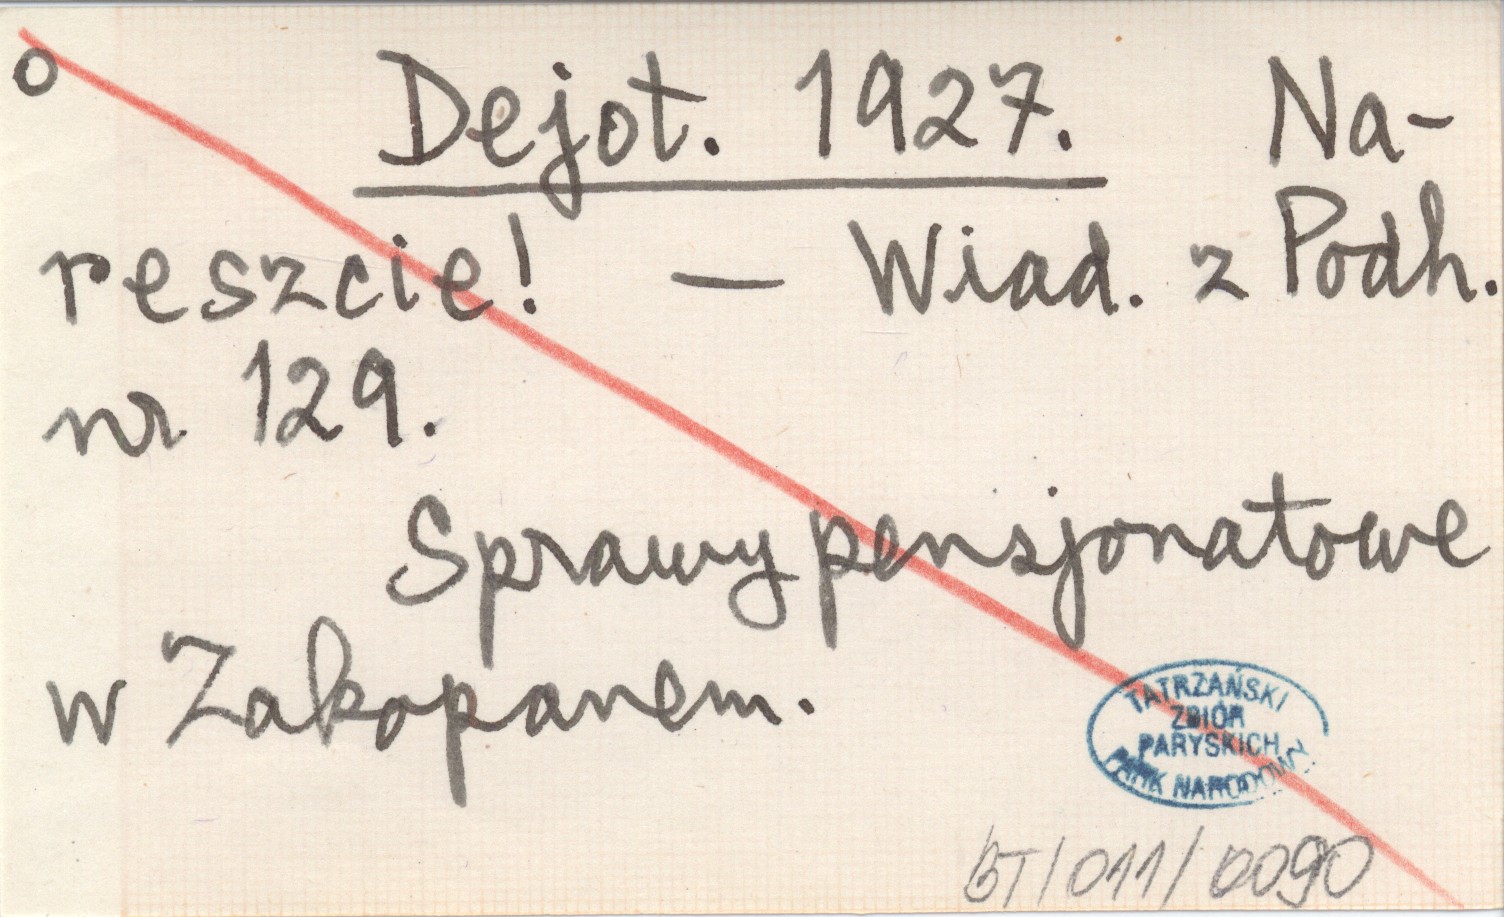 o Dejot. 1927. Na-
reszcie! — Wiad. z Podh.
nr 129.
Sprawy pensjonatowe
w Zakopanem.
TATRZAŃSKI
ZBIÓR
PARYSKICH
PARK NARODOWY
BT/011/0090